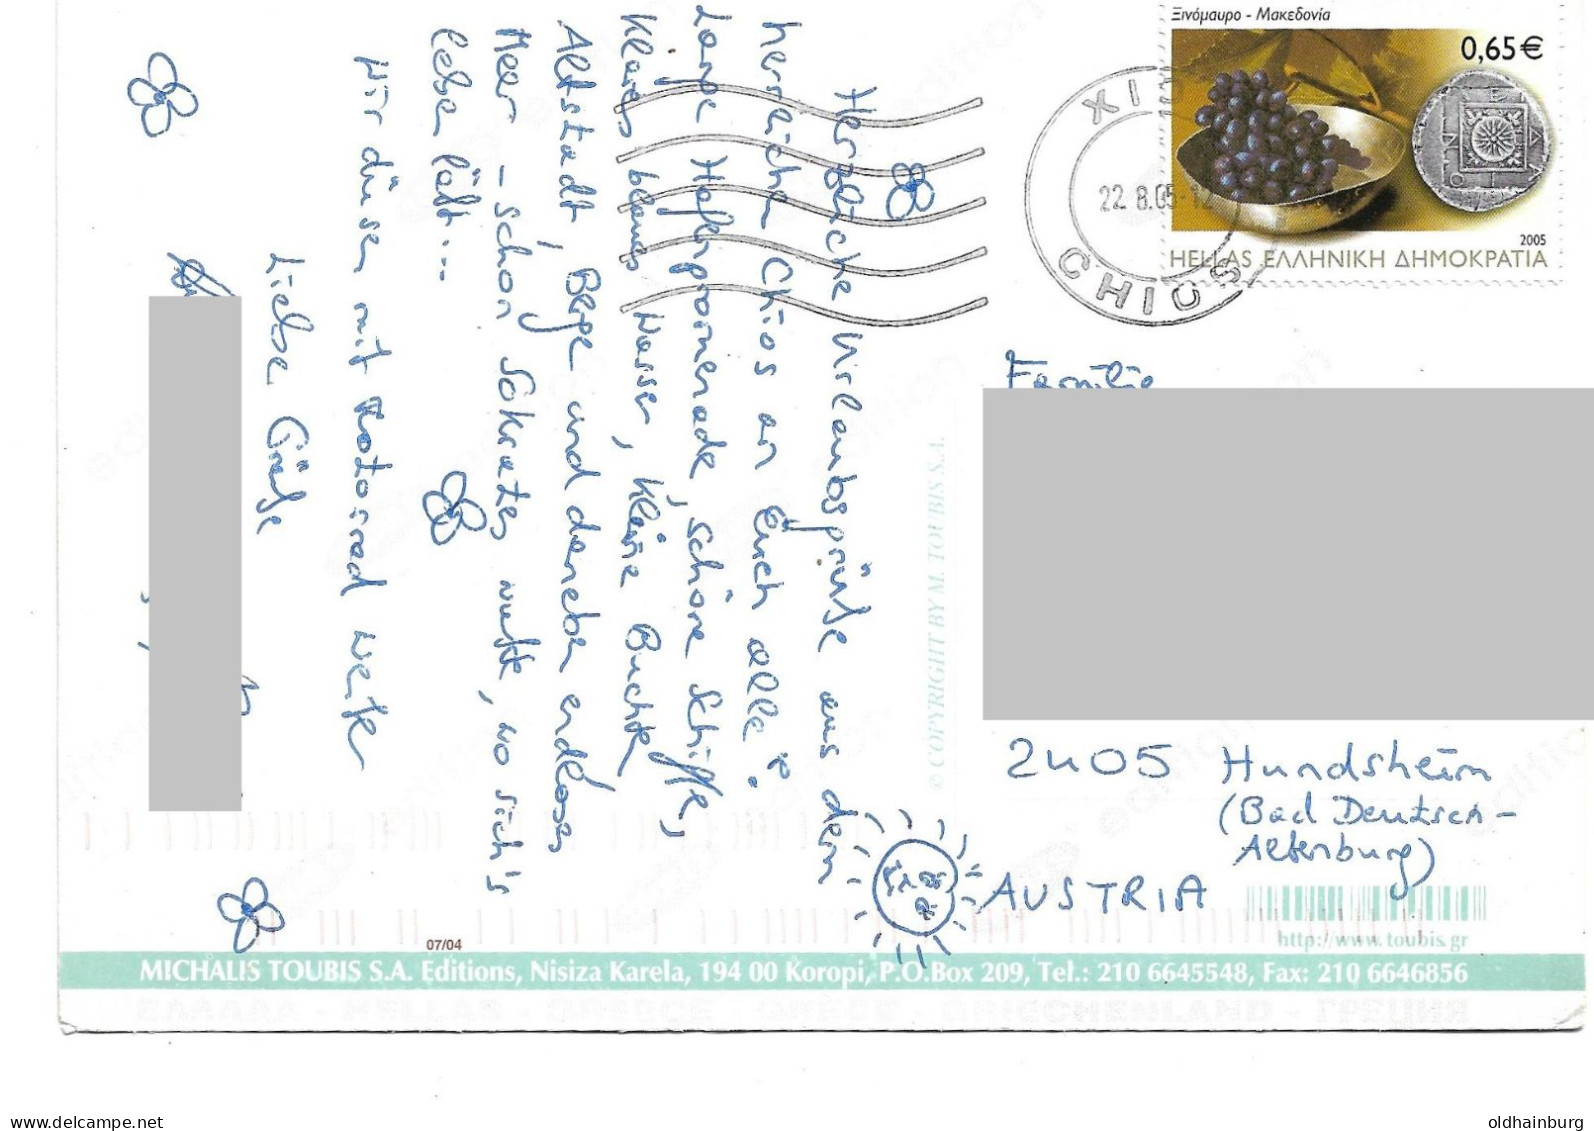 Herzliche Urlaubsgrüße aus dem
herrlichen Chios an Euch alle!
Lange Hafenpromenade, schöne Schiffe,
klares blaues Wasser, kleine Buchten
Altstadt, Berge und daneben endloses
Meer – schon Sokrates wußte, wo sich's
leben läßt...
Wir düsen mit Motorrad weiter
Liebe Grüße
Ξινόμαυρο - Μακεδονία
0,65€
2005
HELLAS ΕΛΛΗΝΙΚΗ ΔΗΜΟΚΡΑΤΙΑ
22.8.05-12
CHIOS
Familie
2405 Hundsheim
(Bad Deutsch-
Altenburg)
AUSTRIA
© COPYRIGHT BY M. TOUBIS S.A.
http://www.toubis.gr
07/04
MICHALIS TOUBIS S.A. Editions, Nisiza Karela, 194 00 Koropi, P.O.Box 209, Tel.: 210 6645548, Fax: 210 6646856
ΕΛΛΑΔΑ - HELLAS - GREECE - GRÈCE - GRIECHENLAND - ГРЕЦИЯ
www.delcampe.net
oldhainburg